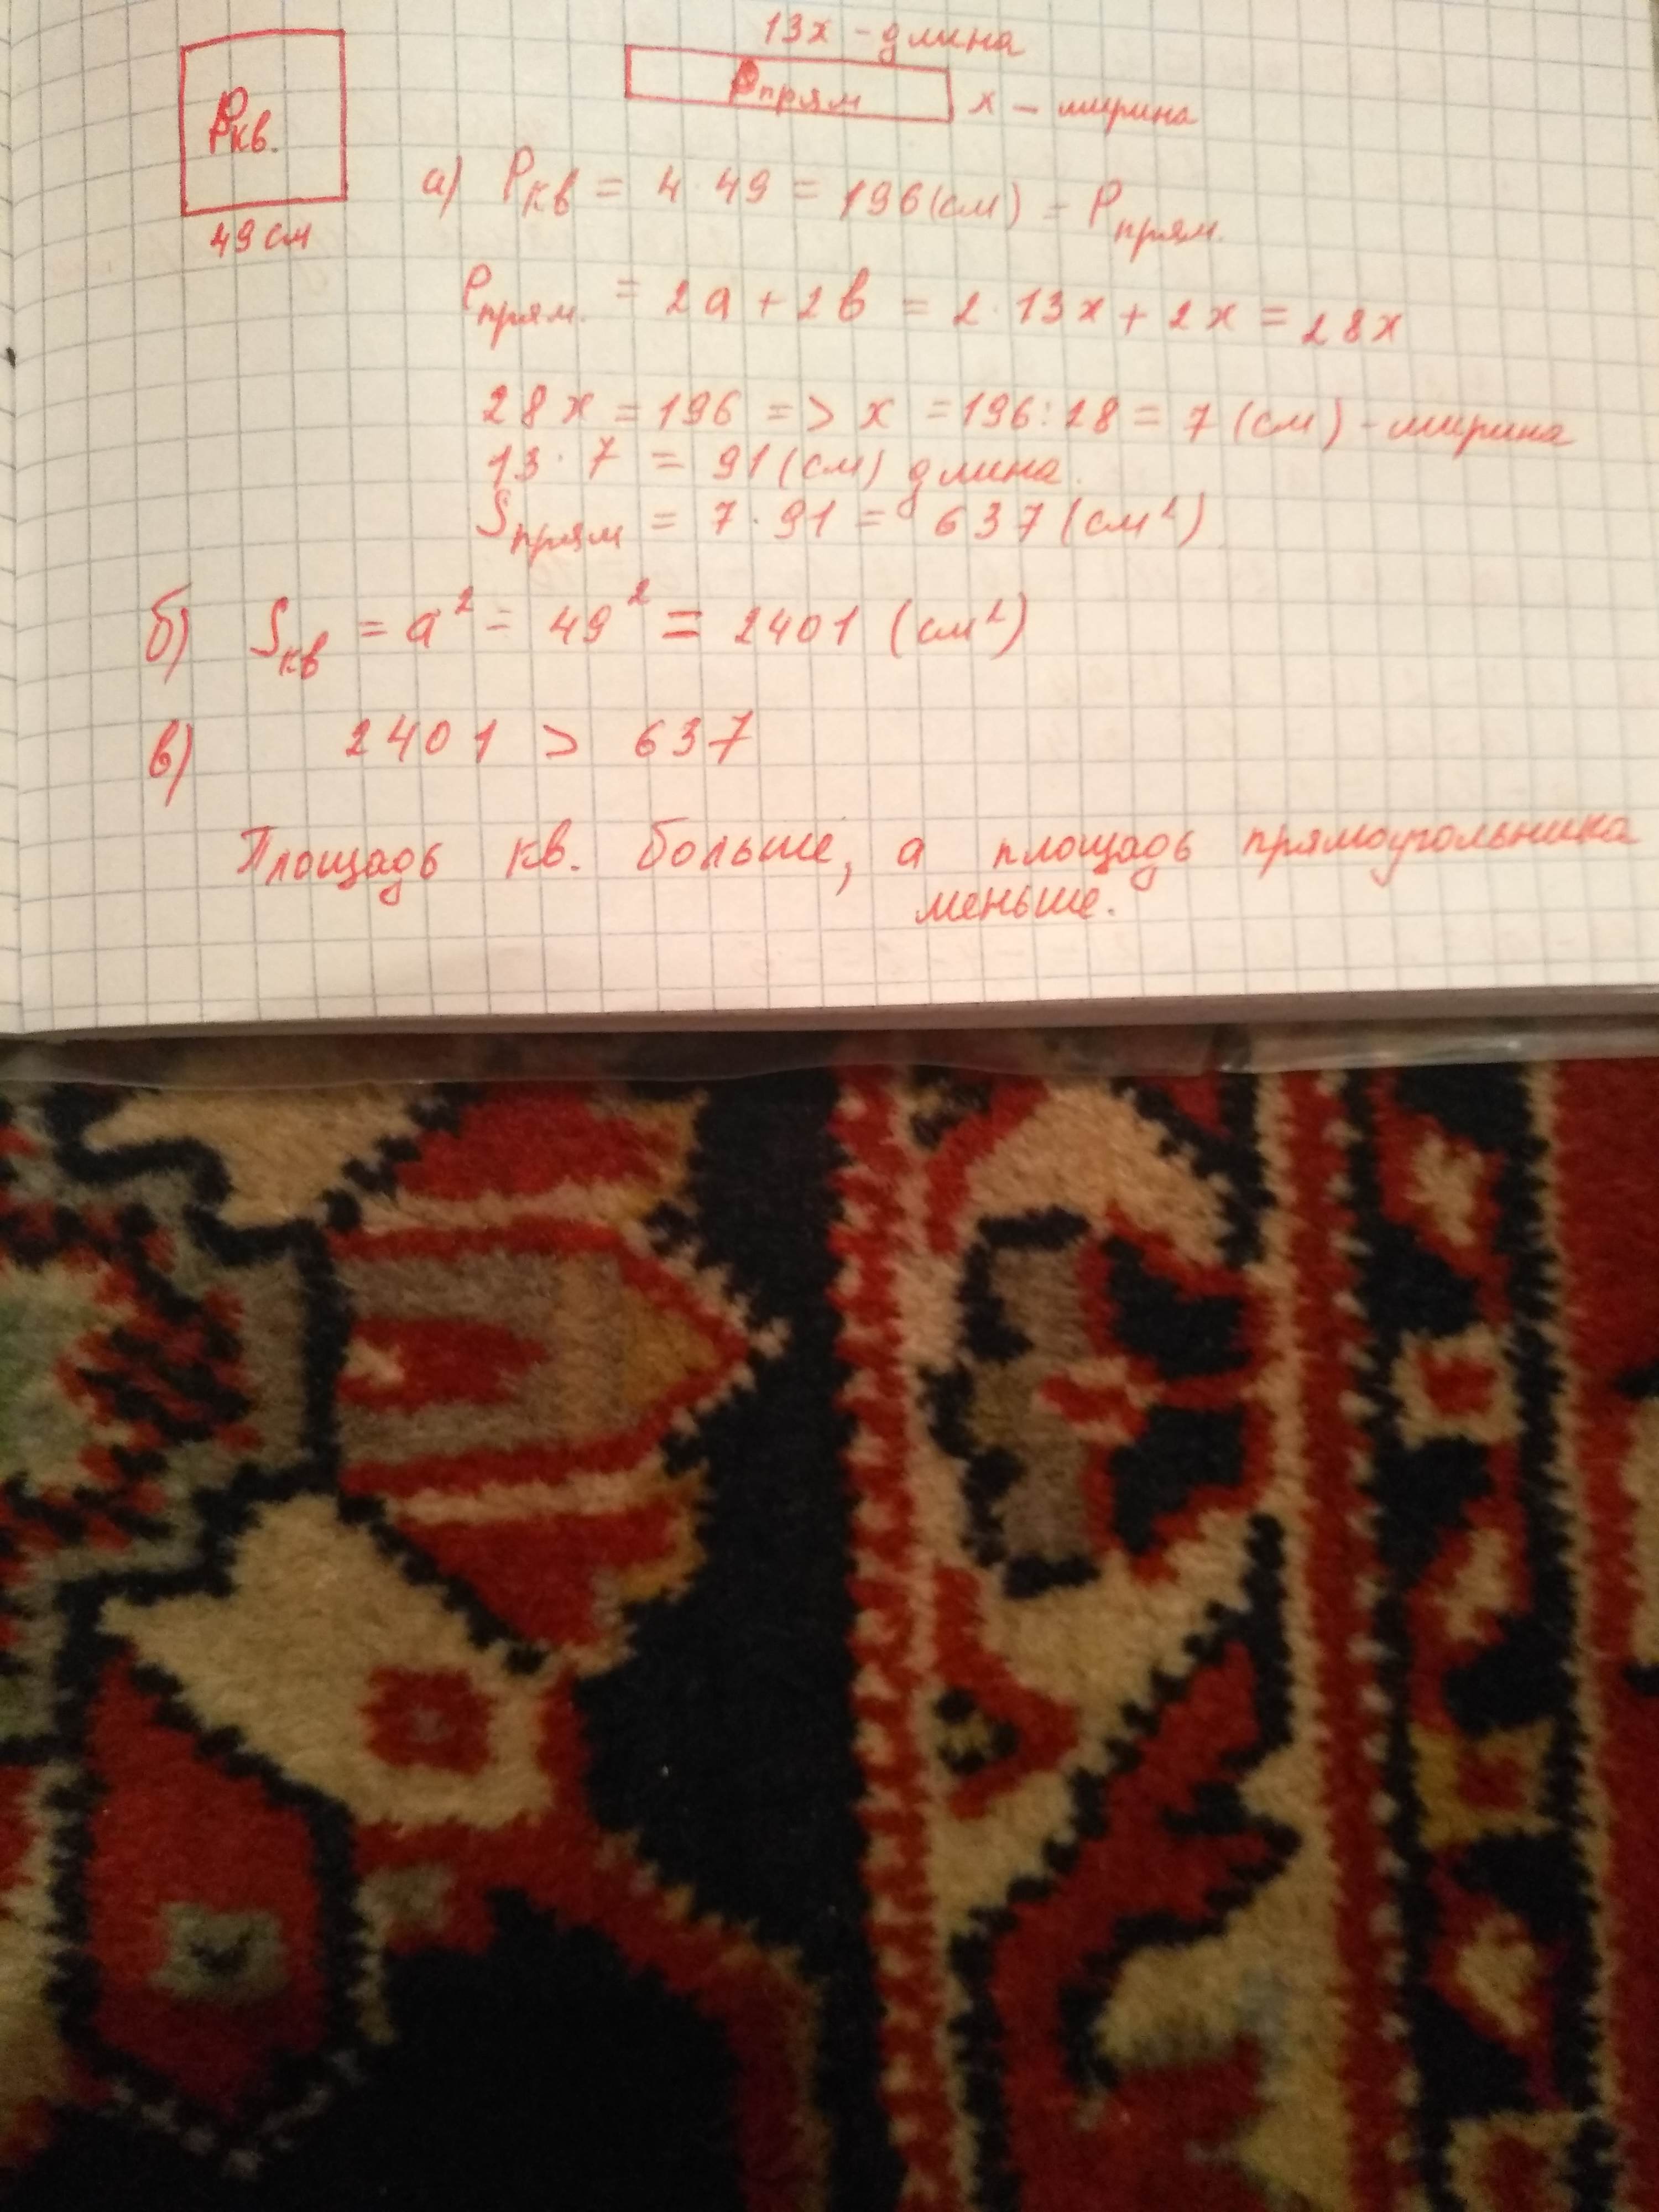 13x - длина
Pкв.
Pпрям
x - ширина
49 см
а) Pкв = 4 · 49 = 196 (см) = Pпрям.
Pпрям. = 2a + 2b = 2 · 13x + 2x = 28x
28x = 196 => x = 196 : 28 = 7 (см) - ширина
13 · 7 = 91 (см) длина.
Sпрям = 7 · 91 = 637 (см²)
б) Sкв = a² = 49² = 2401 (см²)
в) 2401 > 637
Площадь кв. больше, а площадь прямоугольника
меньше.